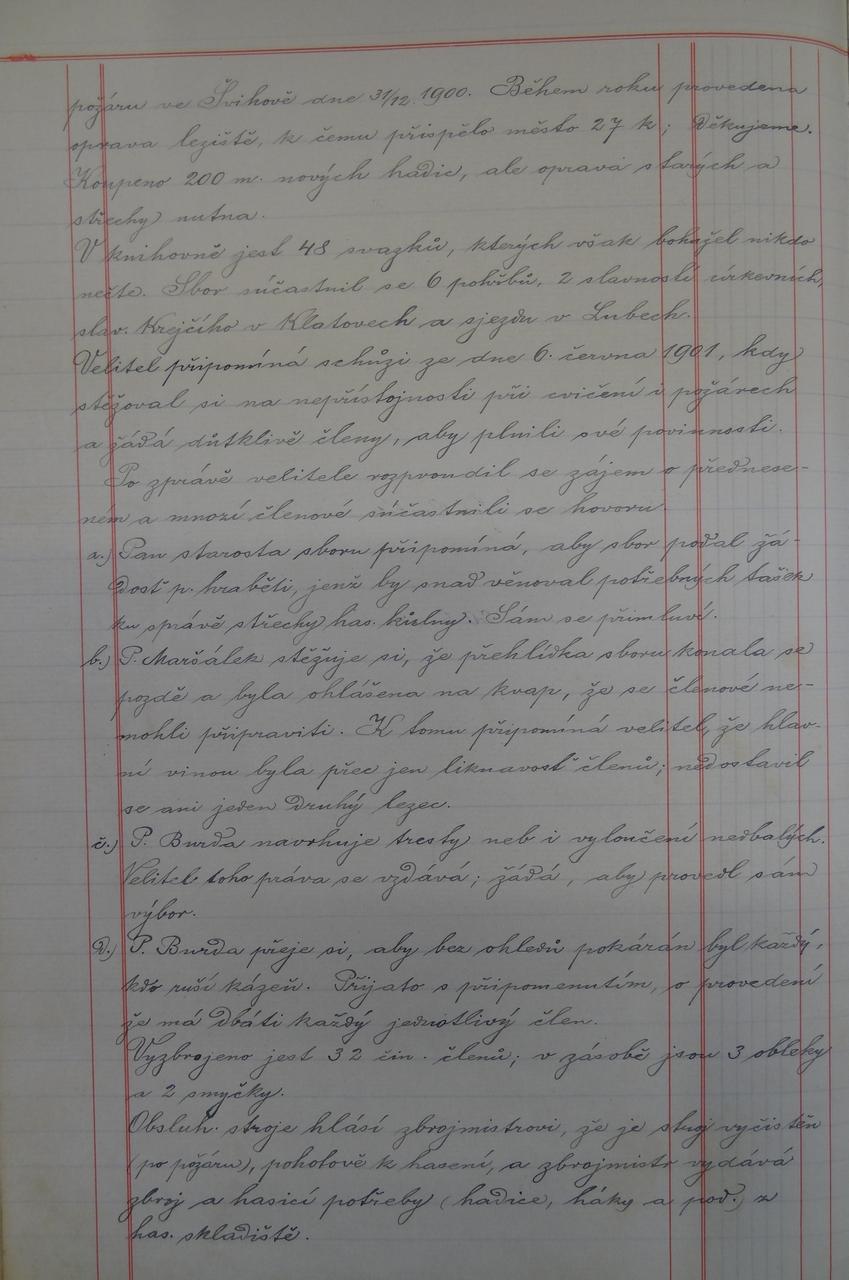 požáru ve Švihově dne 31/12. 1900. Během roku provedena
oprava leziště, k čemu přispělo město 27 k; Děkujeme.
Koupeno 200 m. nových hadic, ale oprava starých a
střechy nutna.
V knihovně jest 48 svazků, kterých však bohužel nikdo
nečte. Sbor súčastnil se 6 pohřbů, 2 slavností církevních,
slav. Krejčího v Klatovech a sjezdu v Lubech.
Velitel připomíná schůzi ze dne 6. června 1901, kdy
stěžoval si na nepřístojnosti při cvičení i požárech
a žádá důtklivě členy, aby plnili své povinnosti.
Po zprávě velitele rozproudil se zájem o přednese-
ném a mnozí členové súčastnili se hovoru.
a.) Pan starosta sboru připomíná, aby sbor podal žá-
dosť p. hraběti, jenž by snad věnoval potřebných tašek
ku správě střechy has. kůlny. Sám se přimluví.
b.) P. Maršálek stěžuje si, že přehlídka sboru konala se
pozdě a byla ohlášena na kvap, že se členové ne-
mohli připraviti. K tomu připomíná velitel, že hlav-
ní vinou byla přec jen liknavosť členů; nedostavil
se ani jeden druhý lezec.
č.) P. Burda navrhuje tresty neb i vyloučení nedbalých.
Velitel toho práva se vzdává; žádá, aby provedl sám
výbor.
d.) P. Burda přeje si, aby bez ohledů pokárán byl každý,
kdo ruší kázeň. Přijato s připomenutím, o provedení
že má dbáti každý jednotlivý člen.
Vyzbrojeno jest 32 čin. členů; v zásobě jsou 3 obleky
a 2 smyčky.
Obsluh. stroje hlásí zbrojmistrovi, že je stroj vyčistěn
(po požáru), pohotově k hasení, a zbrojmistr vydává
zbroj a hasicí potřeby (hadice, háky a pod.) z
has. skladiště.